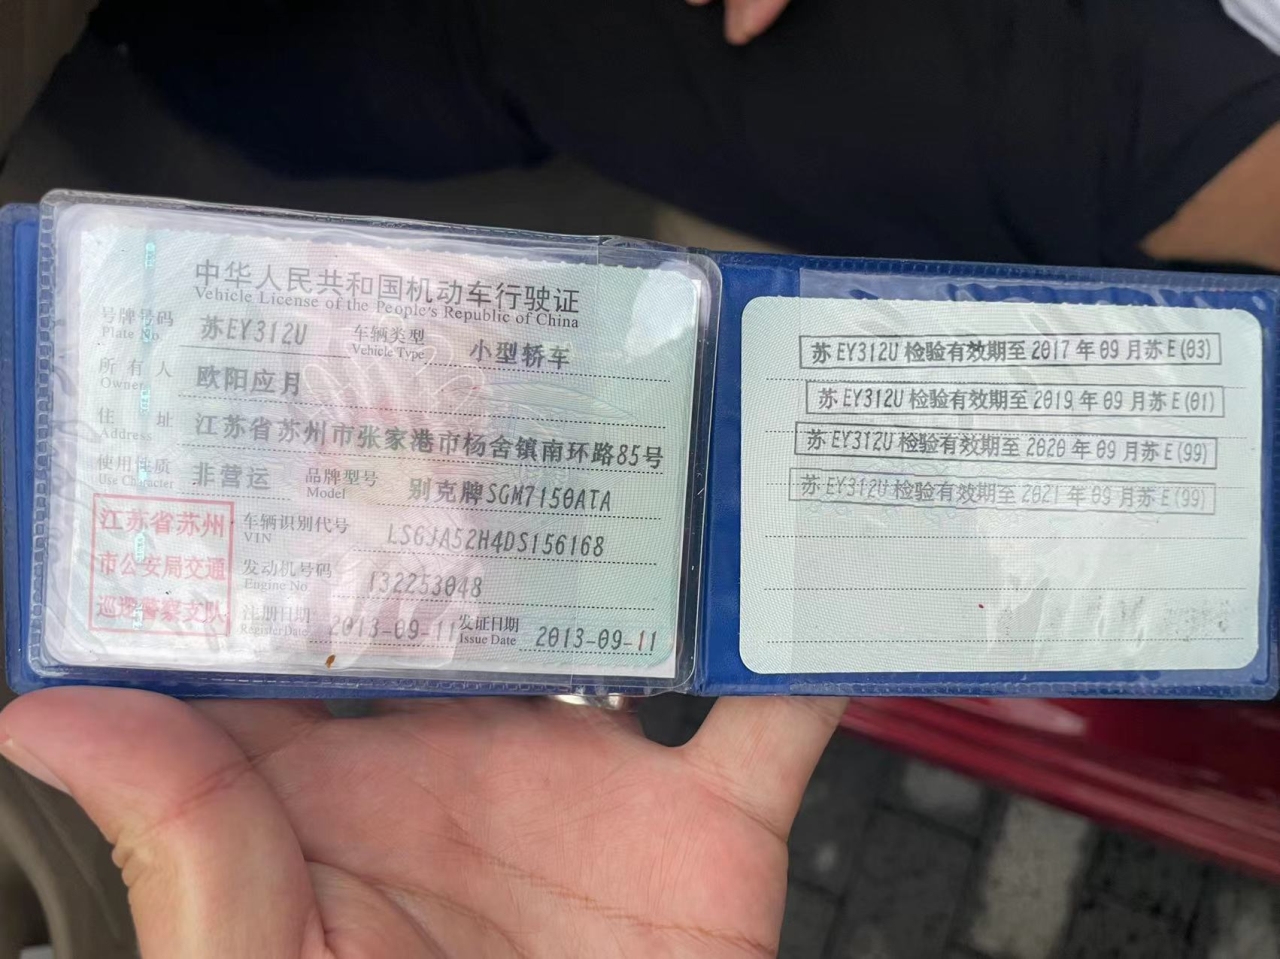 中华人民共和国机动车行驶证
Vehicle License of the People's Republic of China
号牌号码 苏EY312U 车辆类型 小型轿车
Plate No. Vehicle Type
所有人 欧阳应月
Owner
住址 江苏省苏州市张家港市杨舍镇南环路85号
Address
使用性质 非营运 品牌型号 别克牌SGM7150ATA
Use Character Model
江苏省苏州
市公安局交通
巡逻警察支队
车辆识别代号 LSGJA52H4DS156168
VIN
发动机号码 132253048
Engine No
注册日期 2013-09-11 发证日期 2013-09-11
Register Date Issue Date
苏EY312U检验有效期至2017年09月苏E(03)
苏EY312U检验有效期至2019年09月苏E(01)
苏EY312U检验有效期至2020年09月苏E(99)
苏EY312U检验有效期至2021年09月苏E(99)